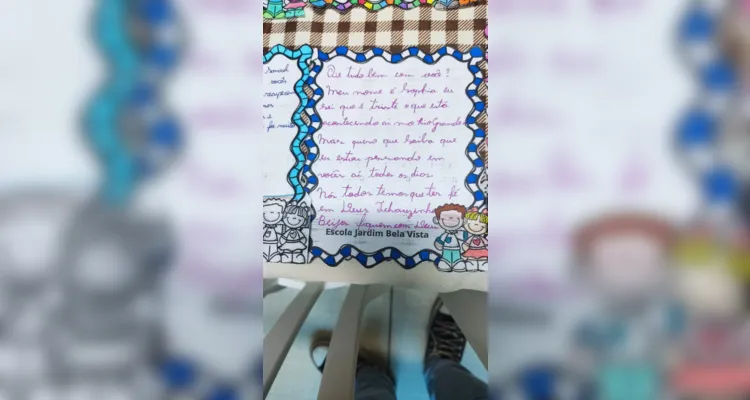 Oie tudo bem com você?
Meu nome é Sophia eu
sei que é triste o que está
acontecendo ai no Rio Grande
Mas quero que saiba que
eu estou pensando em
vocês aí todos os dias
Nós todos temos que ter fé
em Deus Tchauzinho
Beijos fiquem com Deus
Escola Jardim Bela Vista